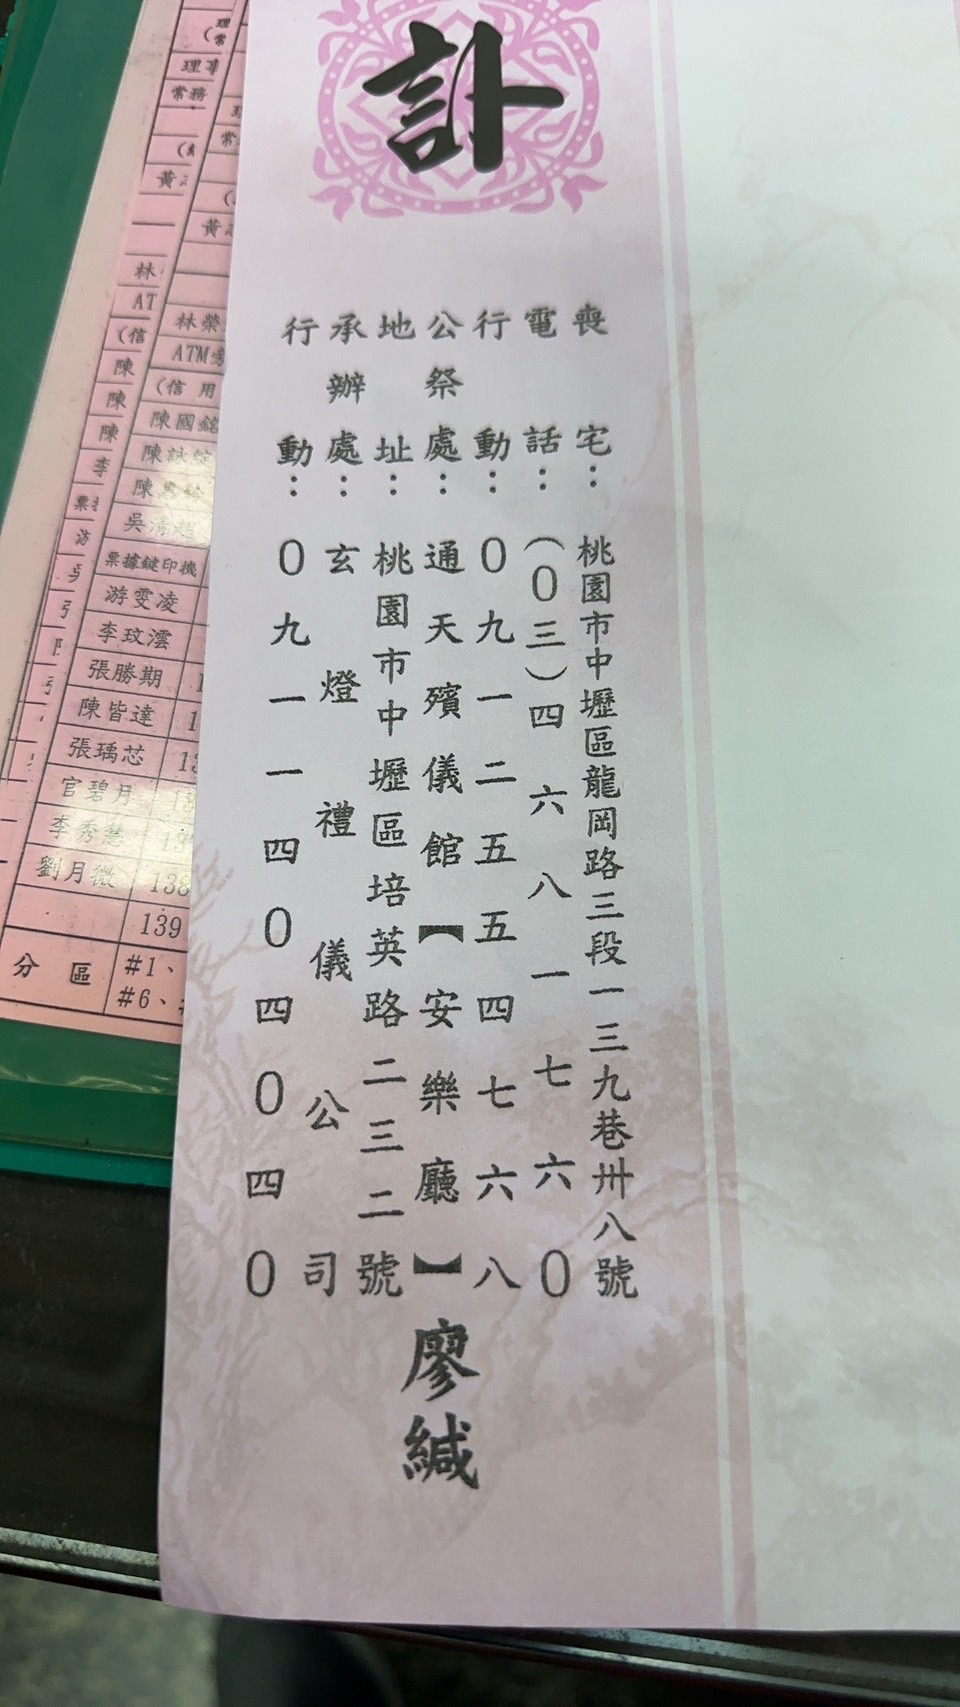 訃
喪宅：桃園市中壢區龍岡路三段一三九巷卅八號
電話：（０三）四六八一七六０
行動：０九一二五五四七六八
公祭處：通天殯儀館【安樂廳】
地址：桃園市中壢區培英路二三二號
承辦處：玄燈禮儀公司
行動：０九一一四０四０四０
廖緘
理事
常務
黃
林
AT
(信
陳
陳
陳
李
林榮
ATM
(信用
陳國銘
陳詠
陳
吳
票據鍵印機
游雯凌
李玟澐
張勝期
陳皆達
張瑀芯
官碧月
李秀慧
劉月微
138
139
分區
#1、
#6、